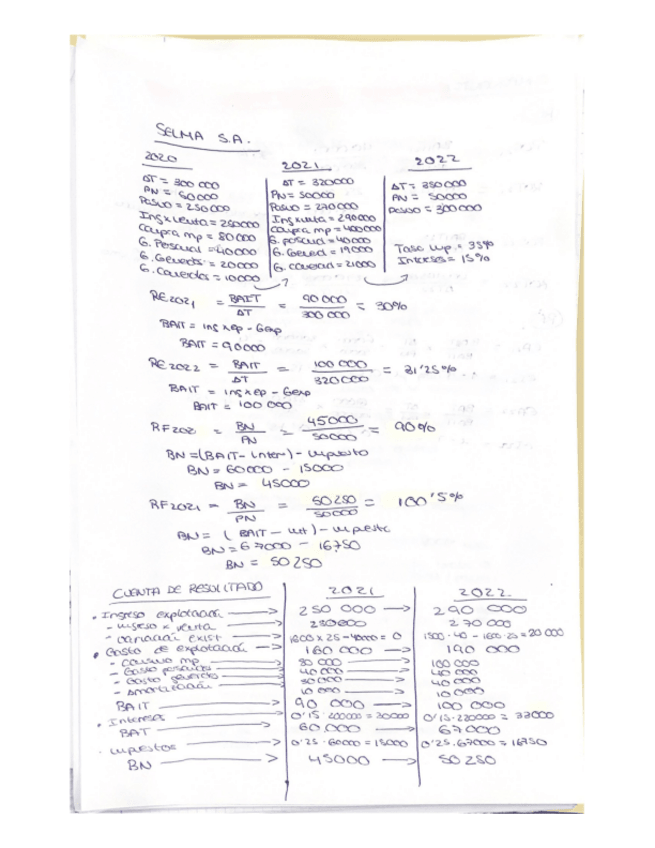 SELMA S.A.
2020
AT = 300 000
PN = 50000
Pasivo = 250000
Ing x venta = 250000
Compra mp = 80000
G. Personal = 40000
G. Generals = 20000
G. = 10000
2021
AT = 320000
PN = 50000
Pasivo = 270000
Ing x venta = 290000
Compra mp = 400000
G. personal = 40000
G. General = 19000
G. = 21000
2022
AT = 350000
PN = 50000
pasivo = 300000
Tasa imp. = 35%
Intereses = 15%
RE 2021 = BAIT / AT = 90 000 / 300 000 = 30%
BAIT = ing x ep - Gexp
BAIT = 90000
RE 2022 = BAIT / AT = 100 000 / 320000 = 31'25%
BAIT = ing x ep - Gexp
BAIT = 100 000
RF 202 = BN / PN = 45000 / 50000 = 90%
BN = (BAIT - inter) - impuesto
BN = 60000 - 15000
BN = 45000
RF 2021 = BN / PN = 50250 / 50000 = 100'5%
BN = (BAIT - int) - impuesto
BN = 67000 - 16750
BN = 50250
CUENTA DE RESULTADO 2021 2022
• Ingreso explotación → 250 000 → 290 000
- ingreso x venta → 250000 270 000
- variación exist → 1600 x 25 - 40000 = 0 1500·40 - 1600·25 = 20 000
• Gasto de explotación → 160 000 → 190 000
- consumo mp → 80 000 → 100 000
- Gasto personal → 40 000 → 40 000
- Gasto generals → 30 000 → 40 000
- Amortización → 10 000 → 10 000
BAIT → 90 000 → 100 000
• Intereses → 0'15·200000 = 30000 0'15·220000 = 33000
BAT → 60,000 → 67000
· impuestos → 0'25·60000 = 15000 0'25·67000 = 16750
BN → 45000 → 50250